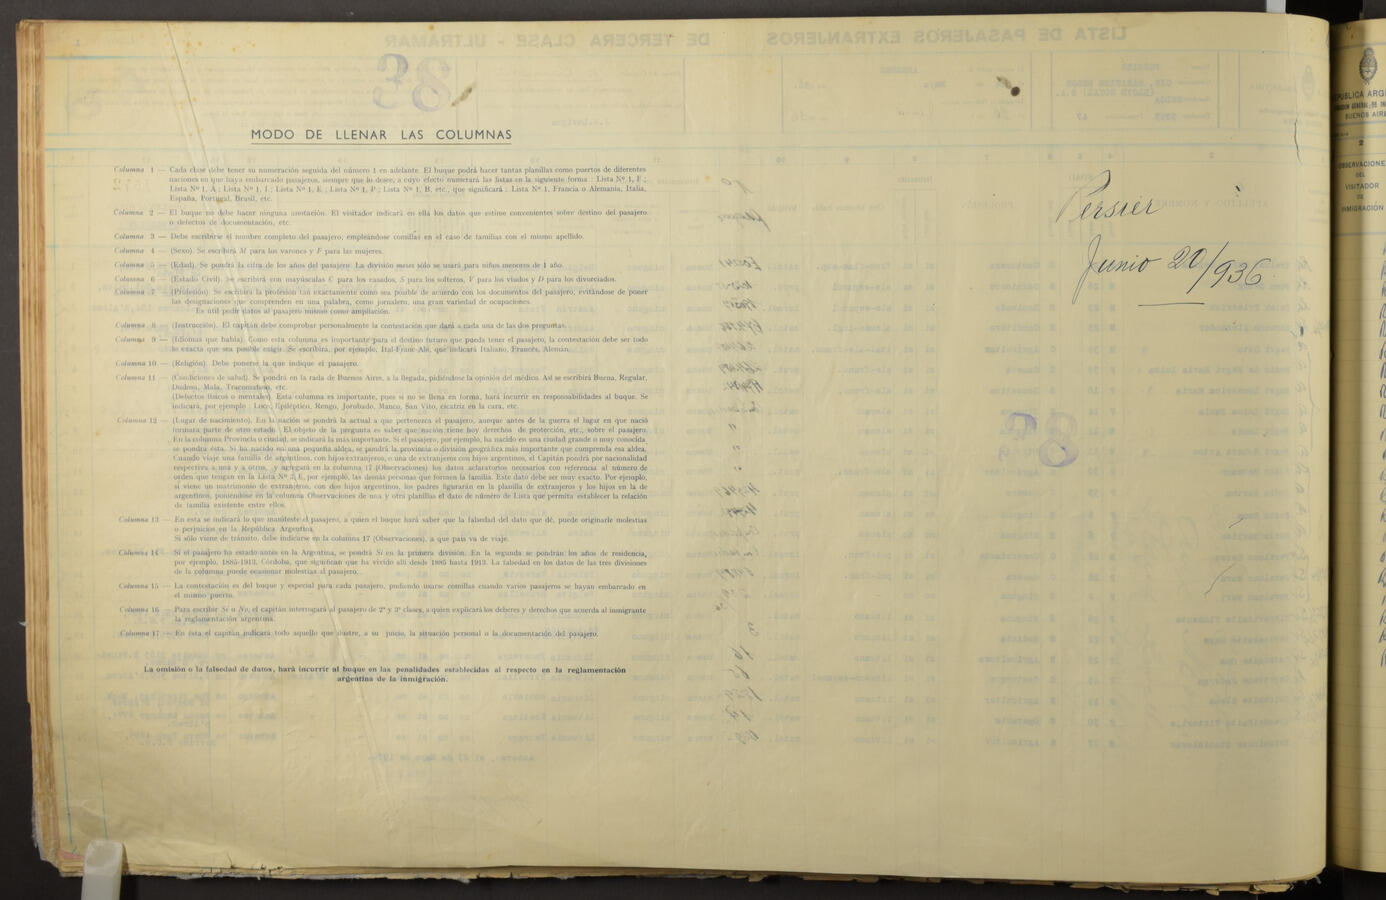 MODO DE LLENAR LAS COLUMNAS
Columna 1 — Cada clase debe tener su numeración seguida del número 1 en adelante. El buque podrá hacer tantas planillas como puertos de diferentes
naciones en que haya embarcado pasajeros, siempre que lo desee, a cuyo efecto numerará las listas en la siguiente forma : Lista Nº 1, F ;
Lista Nº 1, A ; Lista Nº 1, I ; Lista Nº 1, E ; Lista Nº 1, P ; Lista Nº 1, B, etc., que significará : Lista Nº 1, Francia o Alemania, Italia,
España, Portugal, Brasil, etc.
Columna 2 — El buque no debe hacer ninguna anotación. El visitador indicará en ella los datos que estime convenientes sobre destino del pasajero
o defectos de documentación, etc.
Columna 3 — Debe escribirse el nombre completo del pasajero, empleándose comillas en el caso de familias con el mismo apellido.
Columna 4 — (Sexo). Se escribirá M para los varones y F para las mujeres.
Columna 5 — (Edad). Se pondrá la cifra de los años del pasajero. La división meses sólo se usará para niños menores de 1 año.
Columna 6 — (Estado Civil). Se escribirá con mayúsculas C para los casados, S para los solteros, V para los viudos y D para los divorciados.
Columna 7 — (Profesión). Se escribirá la profesión tan exactamente como sea posible de acuerdo con los documentos del pasajero, evitándose de poner
las designaciones que comprenden en una palabra, como jornalero, una gran variedad de ocupaciones.
Es útil pedir datos al pasajero mismo como ampliación.
Columna 8 — (Instrucción). El capitán debe comprobar personalmente la contestación que dará a cada una de las dos preguntas.
Columna 9 — (Idiomas que habla). Como esta columna es importante para el destino futuro que pueda tener el pasajero, la contestación debe ser todo
lo exacta que sea posible exigir. Se escribirá, por ejemplo, Ital-Franc-Alé, que indicará Italiano, Francés, Alemán.
Columna 10 — (Religión). Debe ponerse la que indique el pasajero.
Columna 11 — (Condiciones de salud). Se pondrá en la rada de Buenos Aires, a la llegada, pidiéndose la opinión del médico. Así se escribirá Buena, Regular,
Dudosa, Mala, Tracomatoso, etc.
(Defectos físicos o mentales). Esta columna es importante, pues si no se llena en forma, hará incurrir en responsabilidades al buque. Se
indicará, por ejemplo : Loco, Epiléptico, Rengo, Jorobado, Manco, San Vito, cicatriz en la cara, etc.
Columna 12 — (Lugar de nacimiento). En la nación se pondrá la actual a que pertenezca el pasajero, aunque antes de la guerra el lugar en que nació
formara parte de otro estado. El objeto de la pregunta es saber qué nación tiene hoy derechos de protección, etc., sobre el pasajero.
En la columna Provincia o ciudad, se indicará la más importante. Si el pasajero, por ejemplo, ha nacido en una ciudad grande o muy conocida,
se pondrá ésta. Si ha nacido en una pequeña aldea, se pondrá la provincia o división geográfica más importante que comprenda esa aldea.
Cuando viaje una familia de argentinos, con hijos extranjeros, o una de extranjeros con hijos argentinos, el Capitán pondrá por nacionalidad
respectiva a una y a otros, y agregará en la columna 17 (Observaciones) los datos aclaratorios necesarios con referencia al número de
orden que tengan en la Lista Nº 3, E, por ejemplo, las demás personas que formen la familia. Este dato debe ser muy exacto. Por ejemplo,
si viene un matrimonio de extranjeros, con dos hijos argentinos, los padres figurarán en la planilla de extranjeros y los hijos en la de
argentinos, poniéndose en la columna Observaciones de una y otra planillas el dato de número de Lista que permita establecer la relación
de familia existente entre ellos.
Columna 13 — En esta se indicará lo que manifieste el pasajero, a quien el buque hará saber que la falsedad del dato que dé, puede originarle molestias
o perjuicios en la República Argentina.
Si sólo viene de tránsito, debe indicarse en la columna 17 (Observaciones), a que país va de viaje.
Columna 14 — Si el pasajero ha estado antes en la Argentina, se pondrá Si en la primera división. En la segunda se pondrán los años de residencia,
por ejemplo, 1885-1913, Córdoba, que significan que ha vivido allí desde 1885 hasta 1913. La falsedad en los datos de las tres divisiones
de la columna puede ocasionar molestias al pasajero.
Columna 15 — La contestación es del buque y especial para cada pasajero, pudiendo usarse comillas cuando varios pasajeros se hayan embarcado en
el mismo puerto.
Columna 16 — Para escribir Si o No, el capitán interrogará al pasajero de 2ª y 3ª clases, a quien explicará los deberes y derechos que acuerda al inmigrante
la reglamentación argentina.
Columna 17 — En ésta el capitán indicará todo aquello que ilustre, a su juicio, la situación personal o la documentación del pasajero.
La omisión o la falsedad de datos, hará incurrir al buque en las penalidades establecidas al respecto en la reglamentación
argentina de la inmigración.
Persier
Junio 21/936
OBSERVACIONES
DEL
VISITADOR
DE
INMIGRACIÓN